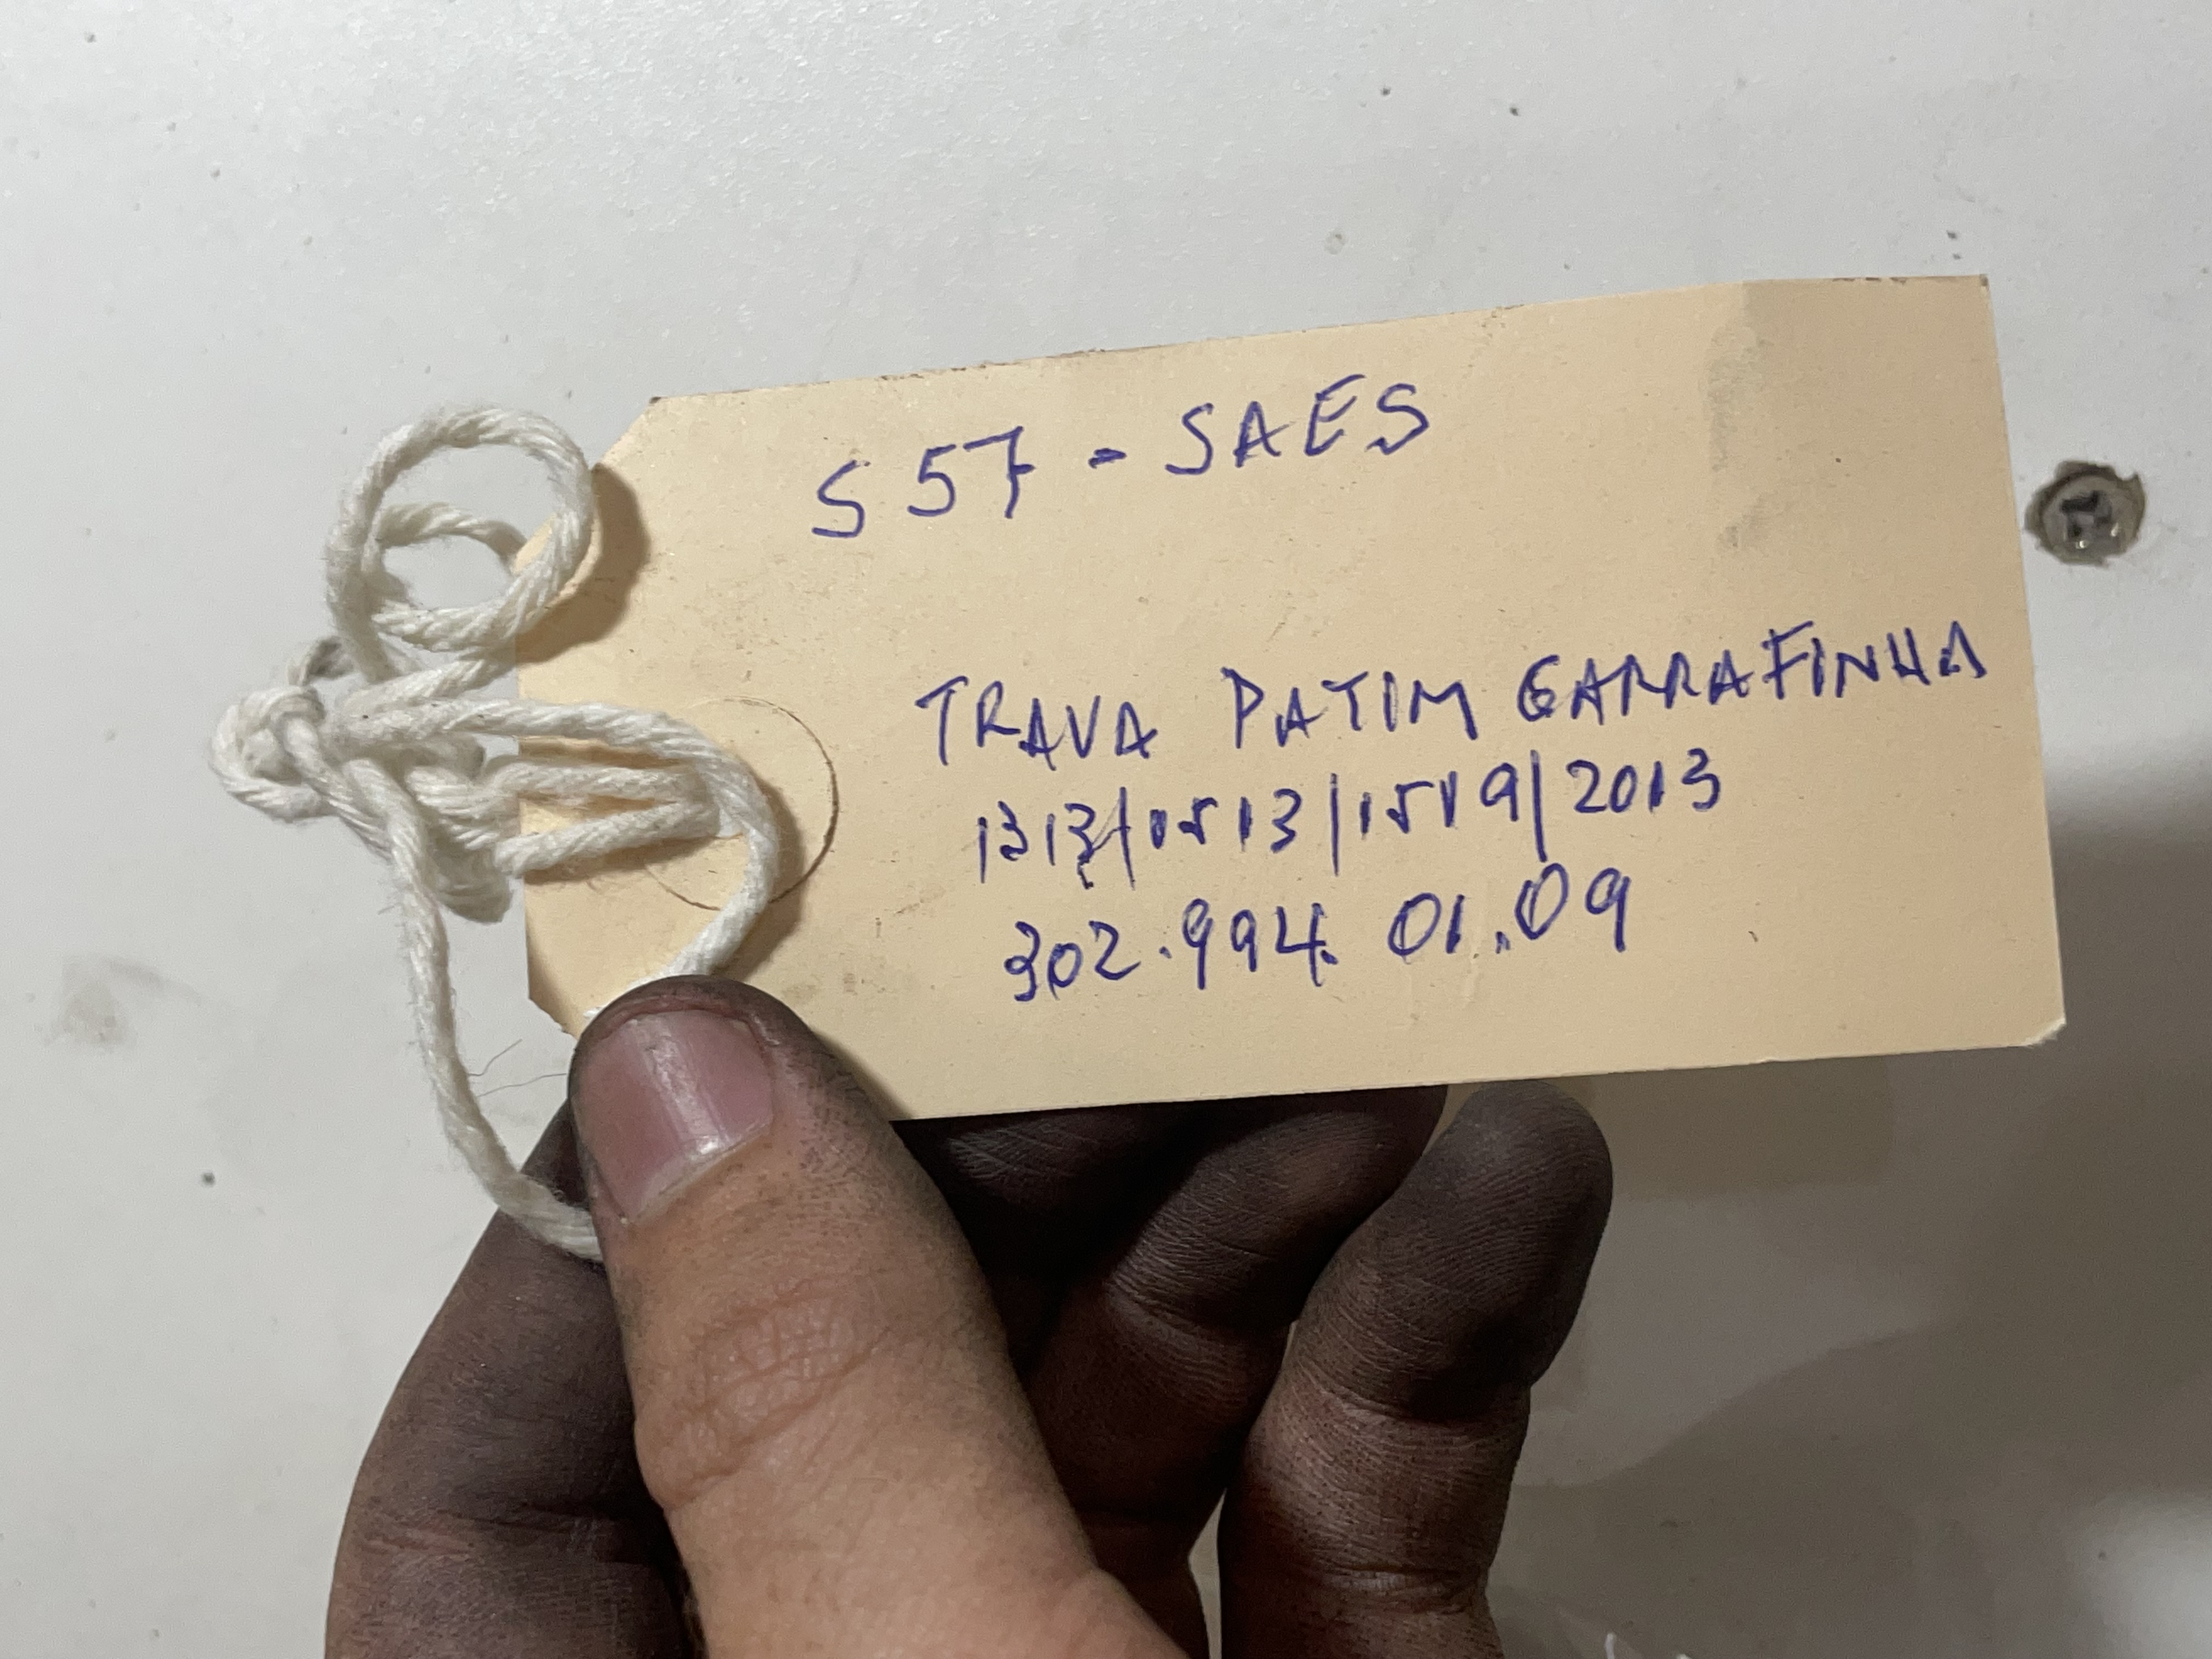 S 57 - SAES
TRAVA PATIM GARRAFINHA
1313/0513/1519/2013
902.994 01.09